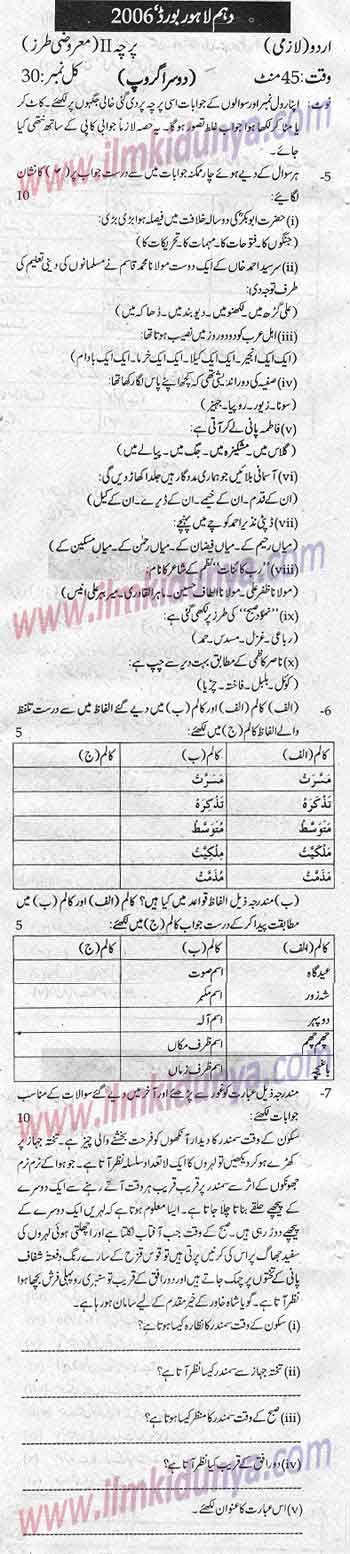 دہم لاہور بورڈ 2006ء
اردو (لازمی) پرچہ II (معروضی طرز)
وقت: 45 منٹ (دوسرا گروپ) کل نمبر: 30
نوٹ: اپنا رول نمبر اور سوالوں کے جوابات اسی پرچہ پر دی گئی خالی جگہوں پر لکھئے۔ کاٹ کر
یا مٹا کر لکھا ہوا جواب غلط تصور ہو گا۔ یہ حصہ لازماً جوابی کاپی کے ساتھ نتھی کیا
جائے۔
5- ہر سوال کے دیے ہوئے چار ممکنہ جوابات میں سے درست جواب پر (✓) کا نشان
لگایئے: 10
(i) حضرت ابوبکرؓ کی دو سالہ خلافت میں فیصلہ ہوا بڑی بڑی:
(جنگوں کا۔ فتوحات کا۔ مہمات کا۔ تحریکات کا)
(ii) سرسید احمد خاں کے ایک دوست مولانا محمد قاسم نے مسلمانوں کی دینی تعلیم کی
طرف توجہ دی:
(علی گڑھ میں۔ لکھنو میں۔ دیوبند میں۔ ڈھاکہ میں)
(iii) اہل عرب کو دو دو روز میں نصیب ہوتا تھا:
(ایک ایک انجیر۔ ایک ایک کیلا۔ ایک ایک خرما۔ ایک ایک بادام)
(iv) صفیہ کی دوراندیشی تھی کہ کچھ اپنے پاس لگا رکھا تھا:
(سونا۔ زیور۔ روپیا۔ جہیز)
(v) فاطمہ پانی لے کر آتی ہے:
(گلاس میں۔ مشکیزہ میں۔ جگ میں۔ پیالے میں)
(vi) آسمانی بلائیں جو ہماری مددگار ہیں جلد اکھاڑ دیں گی:
(ان کے قدم۔ ان کے خیمے۔ ان کے ڈیرے۔ ان کے کیل)
(vii) ڈپٹی نذیر احمد کوچے میں پہنچے:
(میاں رحیم کے۔ میاں فیضان کے۔ میاں رحمٰن کے۔ میاں مسکین کے)
(viii) ”رب کائنات“ نظم کے شاعر کا نام:
(مولانا ظفر علی۔ مولانا الطاف حسین۔ ماہر القادری۔ میر ببر علی انیس)
(ix) ”نمودِ صبح“ کی طرز پر لکھی گئی ہے:
(رباعی۔ غزل۔ مسدس۔ حمد)
(x) ناصر کاظمی کے مطابق بہت دیر سے چپ ہے:
(کوئل۔ بلبل۔ فاختہ۔ چڑیا)
6- (الف) کالم (الف) اور کالم (ب) میں دیے گئے الفاظ میں سے درست تلفظ
والے الفاظ کالم (ج) میں لکھئے: 5
کالم (الف) کالم (ب) کالم (ج)
مَسَرَّتْ مَسرّتْ
تَذْکَرَہ تَذْکِرَہ
مَتَوَسَّطْ مُتَوَسِّطْ
مَلْکِیَّتْ مِلْکِیَّتْ
مَذَمَّتْ مُذَمَّتْ
(ب) مندرجہ ذیل الفاظ قواعد میں کیا ہیں؟ کالم (الف) اور کالم (ب) میں
مطابقت پیدا کر کے درست جواب کالم (ج) میں لکھئے: 5
کالم (الف) کالم (ب) کالم (ج)
عید گاہ اسم صوت
شہ زور اسم مکبر
دوپہر اسم آلہ
چھم چھم اسم ظرف مکاں
باغیچہ اسم ظرف زماں
7- مندرجہ ذیل عبارت کو غور سے پڑھئے اور آخر میں دیے گئے سوالات کے مناسب
جوابات لکھئے: 10
سکون کے وقت سمندر کا دیدار آنکھوں کو فرحت بخشنے والی چیز ہے۔ تختہ جہاز پر
کھڑے ہو کر دیکھیں تو لہروں کا ایک لاتعداد سلسلہ نظر آتا ہے۔ جو ہوا کے نرم نرم
جھونکوں کے اثر سے سمندر پر قریب قریب ہر وقت آتے رہنے سے ایک دوسرے
کے پیچھے حلقے بناتا چلا جاتا ہے۔ ایسا معلوم ہوتا ہے کہ لہریں ایک دوسرے کے
پیچھے دوڑ رہی ہیں۔ صبح کے وقت جب آفتاب نکلتا ہے اور اچھلتی ہوئی لہروں کی
سفید جھاگ پر اس کی کرنیں پڑتی ہیں تو قوس قزح کے سارے رنگ دفعتہً شفاف
پانی کے تختوں پر چمک جاتے ہیں اور دور افق کے قریب تو سنہری روپہلی فرش بچھا ہوا
نظر آتا ہے۔ گویا شاہ خاور کے خیر مقدم کے لیے سامان ہو رہا ہے۔
(i) سکون کے وقت سمندر کا نظارہ کیسا ہوتا ہے؟
(ii) تختہ جہاز سے سمندر کیسا نظر آتا ہے؟
(iii) صبح کے وقت سمندر کا منظر کیسا ہوتا ہے؟
(iv) دور افق کے قریب کیا نظر آتا ہے؟
(v) اس عبارت کا عنوان لکھئے۔
www.ilmkidunya.com
www.ilmkidunya.com
www.ilmkidunya.com
www.ilmkidunya.com
www.ilmkidunya.com